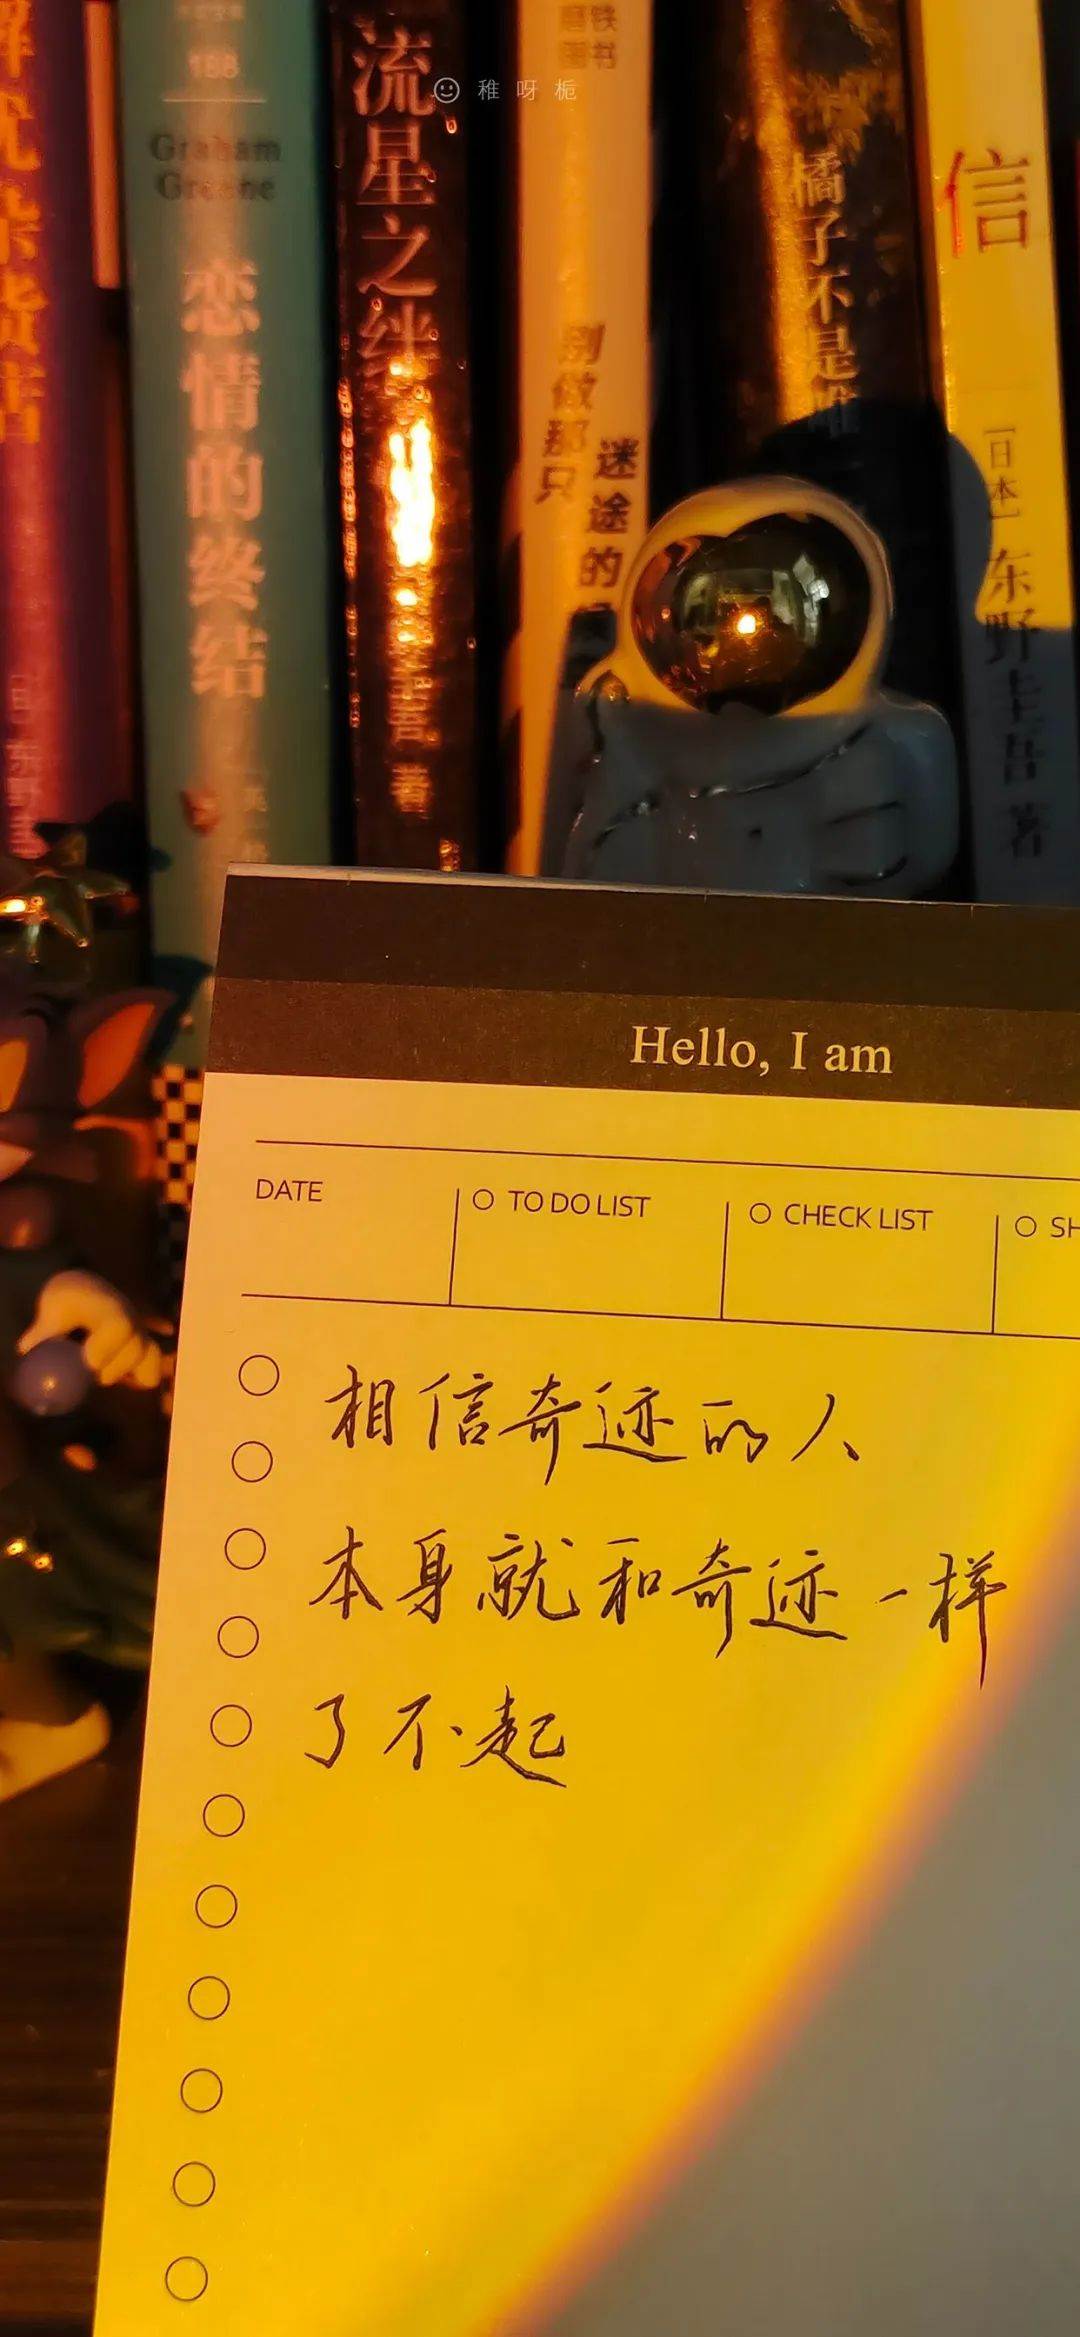 稚呀栀
168
Graham
Greene
恋情的终结
流星之绊
著
别做那只
迷途的
橘子不是唯一
信
[日本] 东野圭吾 著
Hello, I am
DATE
TO DO LIST
CHECK LIST
SH
相信奇迹的人
本身就和奇迹一样
了不起